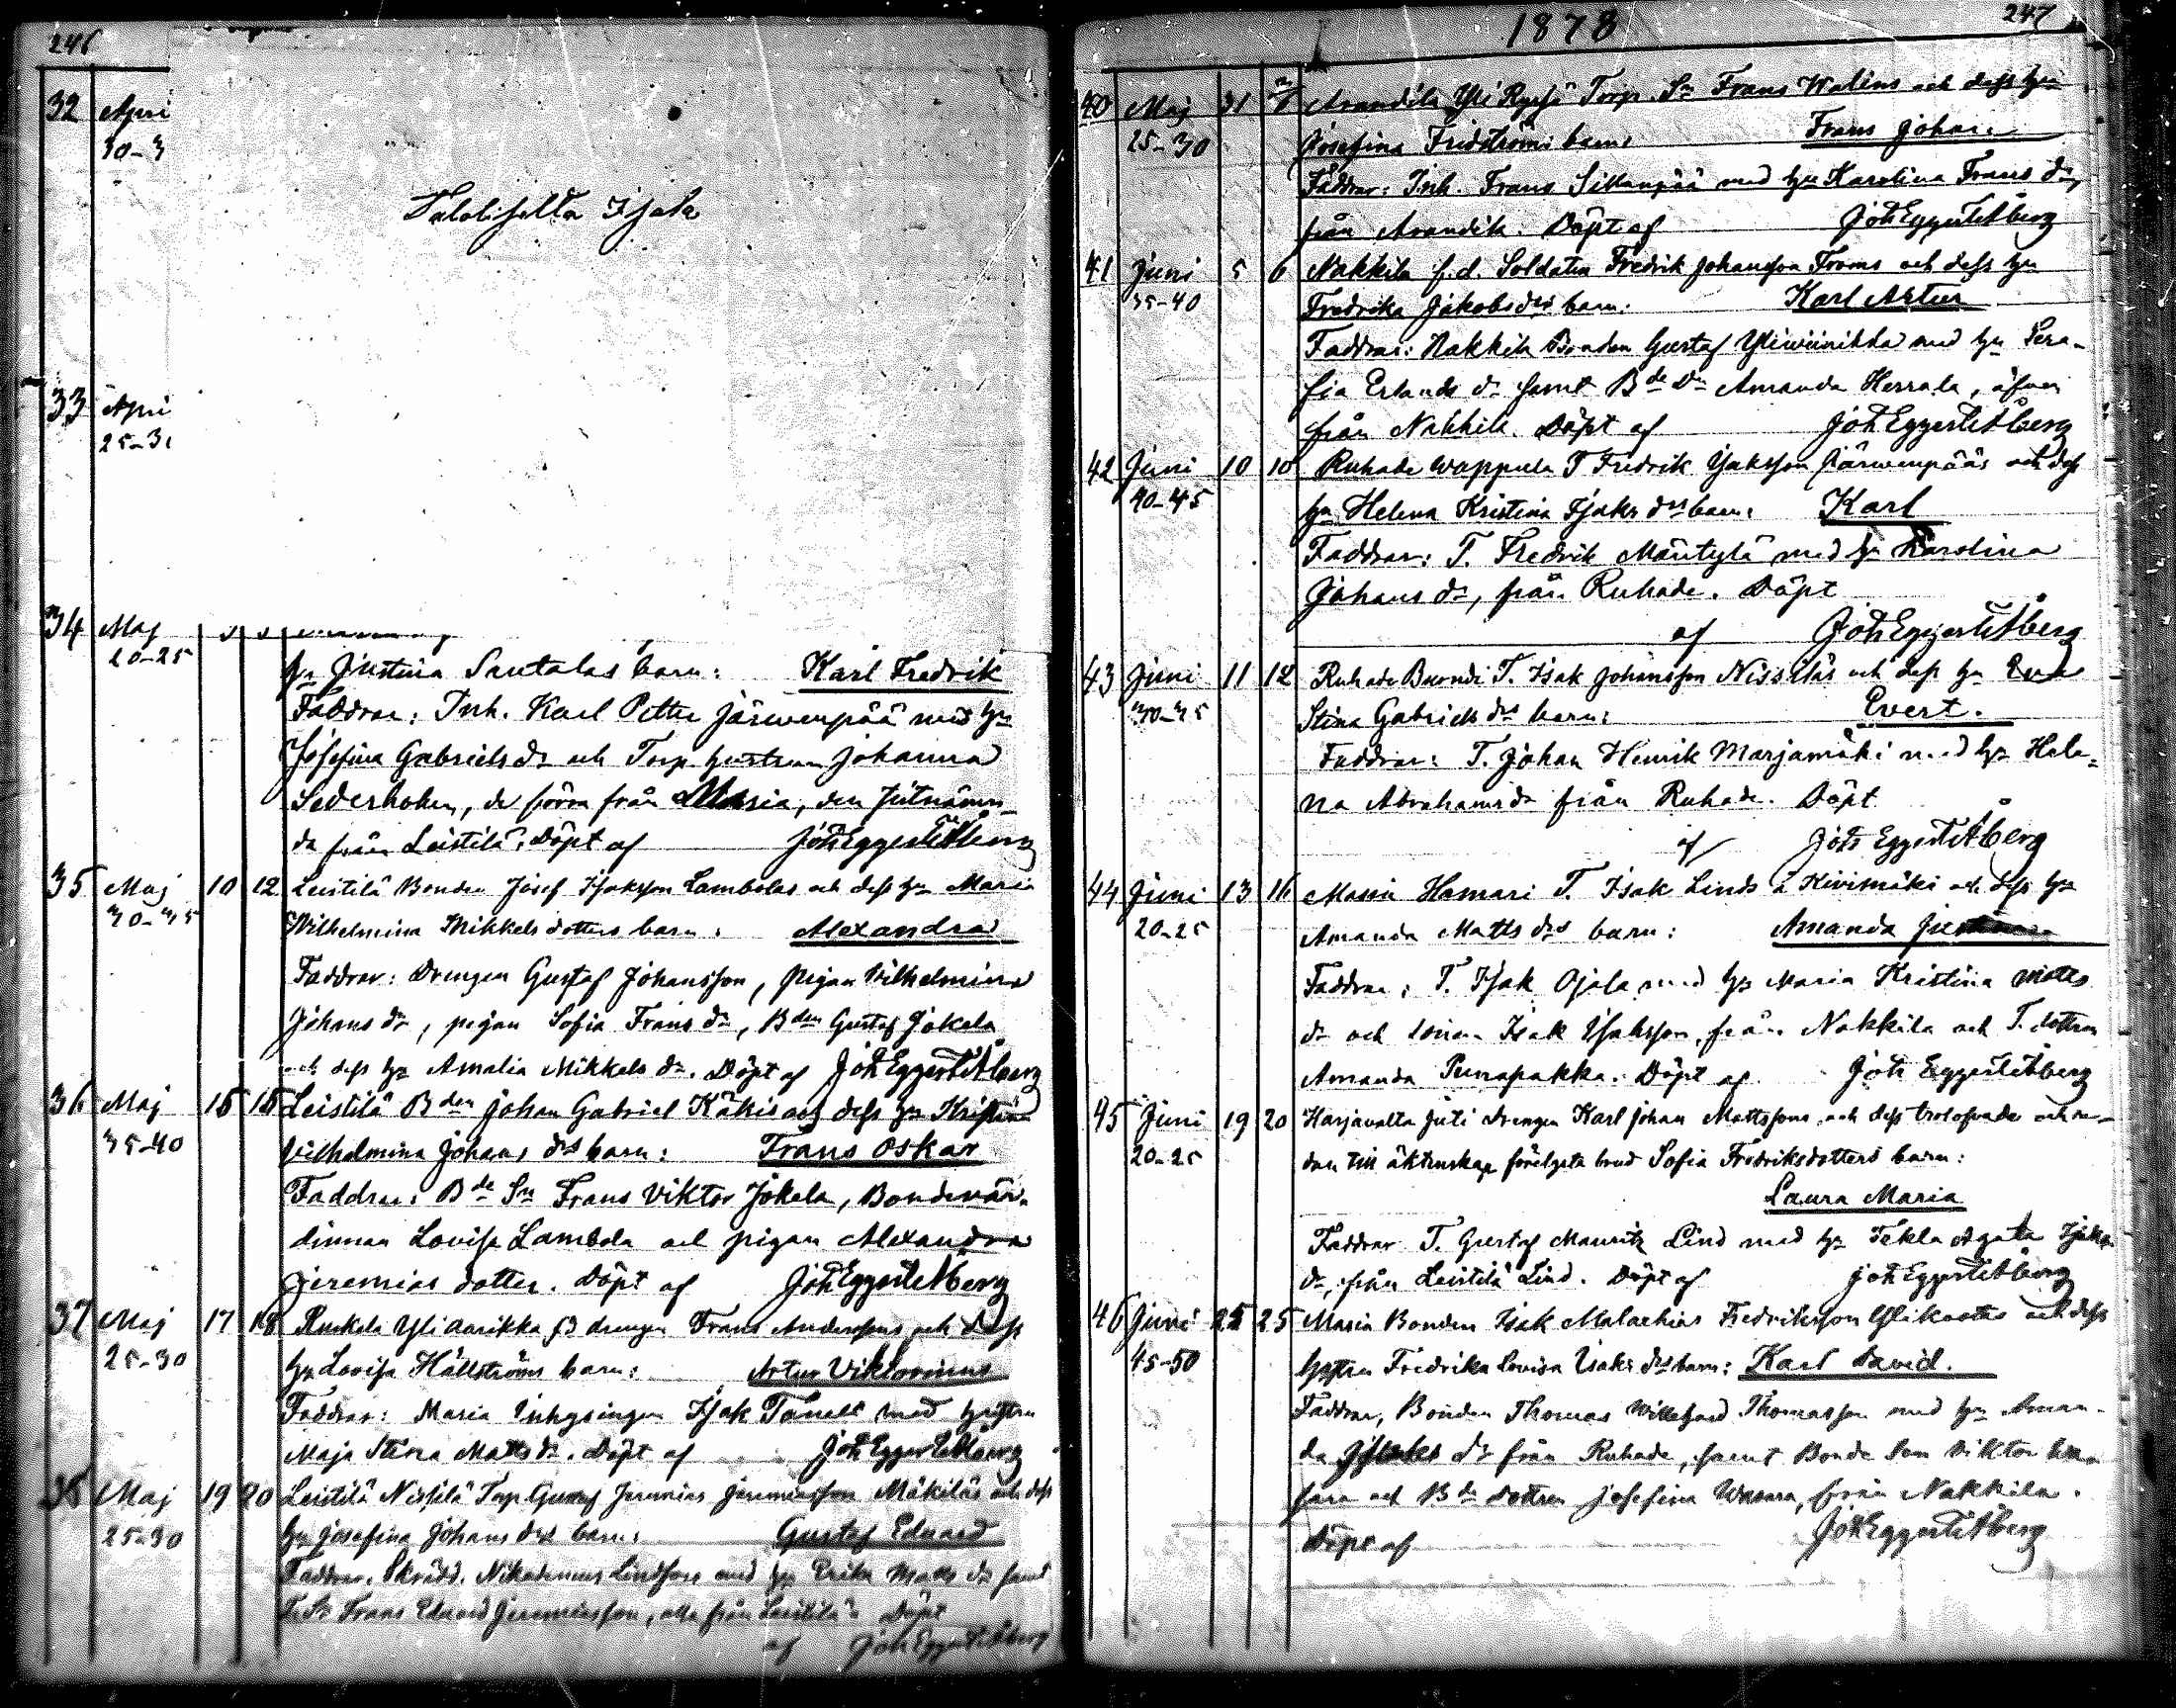 246
32 Apri
30-3
Salolijelta Isak
33 Apri
25-30
34 Maj
20-25
hu Justina Santalas barn: Karl Fredrik
Faddrar: Inh. Karl Petter Järvenpää med hu
Josefina Gabriels dr och Torp. hustrun Johanna
Sederholm, de förra från Masia, den sistnämn-
da från Leistilä. Döpt af Joh Eggert Åberg
35 Maj 10 12 Leistilä Bonden Josef Isaksson Lambolas och dess hu Maria
30-35 Wilhelmina Mikkels dotters barn: Alexandra
Faddrar: Drengen Gustaf Johansson, pigan Vilhelmina
Johans dr, pigan Sofia Frans dr, Bden Gustaf Jokela
och dess hu Amalia Mikkels dr. Döpt af Joh Eggert Åberg
36 Maj 15 15 Leistilä Bden Johan Gabriel Käkis och dess hu Kristina
35-40 Vilhelmina Johans drs barn: Frans Oskar
Faddrar: Bde Sn Frans Viktor Jokela, Bondevär-
dinnan Lovisa Lambola och pigan Alexandra
Jeremias dotter. Döpt af Joh Eggert Åberg
37 Maj 17 18 Ruskela Yli aarikka drengen Frans Anderssons och dess
25-30 hu Lovisa Hällströms barn: Artur Viktorinus
Faddrar: Masia Inhysingen Isak Taneli med hustru
Maja Stina Matts dr. Döpt af Joh Eggert Åberg
38 Maj 19 20 Leistilä Nissilä Torp. Gustaf Jeremias Jeremiasson Mäkiläs och dess
25-30 hu Josefina Johans drs barn: Gustaf Eduard
Faddrar: Skrädd. Nikodemus Lindfors med hu Erika Isaks dr samt
T. Sn Frans Eduard Jeremiasson, alla från Leistilä. Döpt
af Joh Eggert Åberg
1878 247
40 Maj 31 Arandila Yli Rysä Torp. Sn Frans Walins och dess hu
25-30 Josefina Fridströms barn: Frans Johan
Faddrar: Inh. Frans Sillanpää med hu Karolina Frans dr,
från Arandila. Döpt af Joh Eggert Åberg
41 Juni 5 6 Nakkila f.d. Soldaten Fredrik Johansson Froms och dess hu
35-40 Fredrika Jakobs drs barn: Karl Artur
Faddrar: Nakkila Bonden Gustaf Yliviinikka med hu Sera-
fia Erlands dr samt Bde Dr Amanda Herrala, äfven
från Nakkila. Döpt af Joh Eggert Åberg
42 Juni 10 10 Ruhade Wappula T. Fredrik Isaksson Järvenpääs och dess
40-45 hu Helena Kristina Isaks drs barn: Karl
Faddrar: T. Fredrik Mäntylä med hu Karolina
Johans dr, från Ruhade. Döpt
af Joh Eggert Åberg
43 Juni 11 12 Ruhade Buondi T. Isak Johansson Nissiläs och dess hu Eva
30-35 Stina Gabriels drs barn: Evert.
Faddrar: T. Johan Henrik Marjamäki med hu Hele-
na Abrahams dr från Ruhade. Döpt
af Joh Eggert Åberg
44 Juni 13 16 Masia Hamari T. Isak Linds å Kivimäki och dess hu
20-25 Amanda Matts drs barn: Amanda Justina
Faddrar: T. Isak Ojala med hu Maria Kristina Matts
dr och sonen Isak Isaksson, från Nakkila och T. dottren
Amanda Punapakka. Döpt af Joh Eggert Åberg
45 Juni 19 20 Harjavalta Juti drengen Karl Johan Mattssons och dess trolofvade och se-
20-25 dan till äktenskap förelysta brud Sofia Fredriksdotters barn:
Laura Maria
Faddrar T. Gustaf Mauritz Lind med hu Tekla Agata Isaks
dr, från Leistilä Lind. Döpt af Joh Eggert Åberg
46 Juni 25 25 Masia Bonden Isak Malachias Fredriksson Ylikaotas och dess
45-50 hustru Fredrika Lovisa Isaks drs barn: Karl David.
Faddrar, Bonden Thomas Willehard Thomasson med hu Aman-
da dr från Ruhade, samt Bonde Son Viktor Wa-
sara och Bde dottren Josefina Wasara, från Nakkila.
Döpt af Joh Eggert Åberg